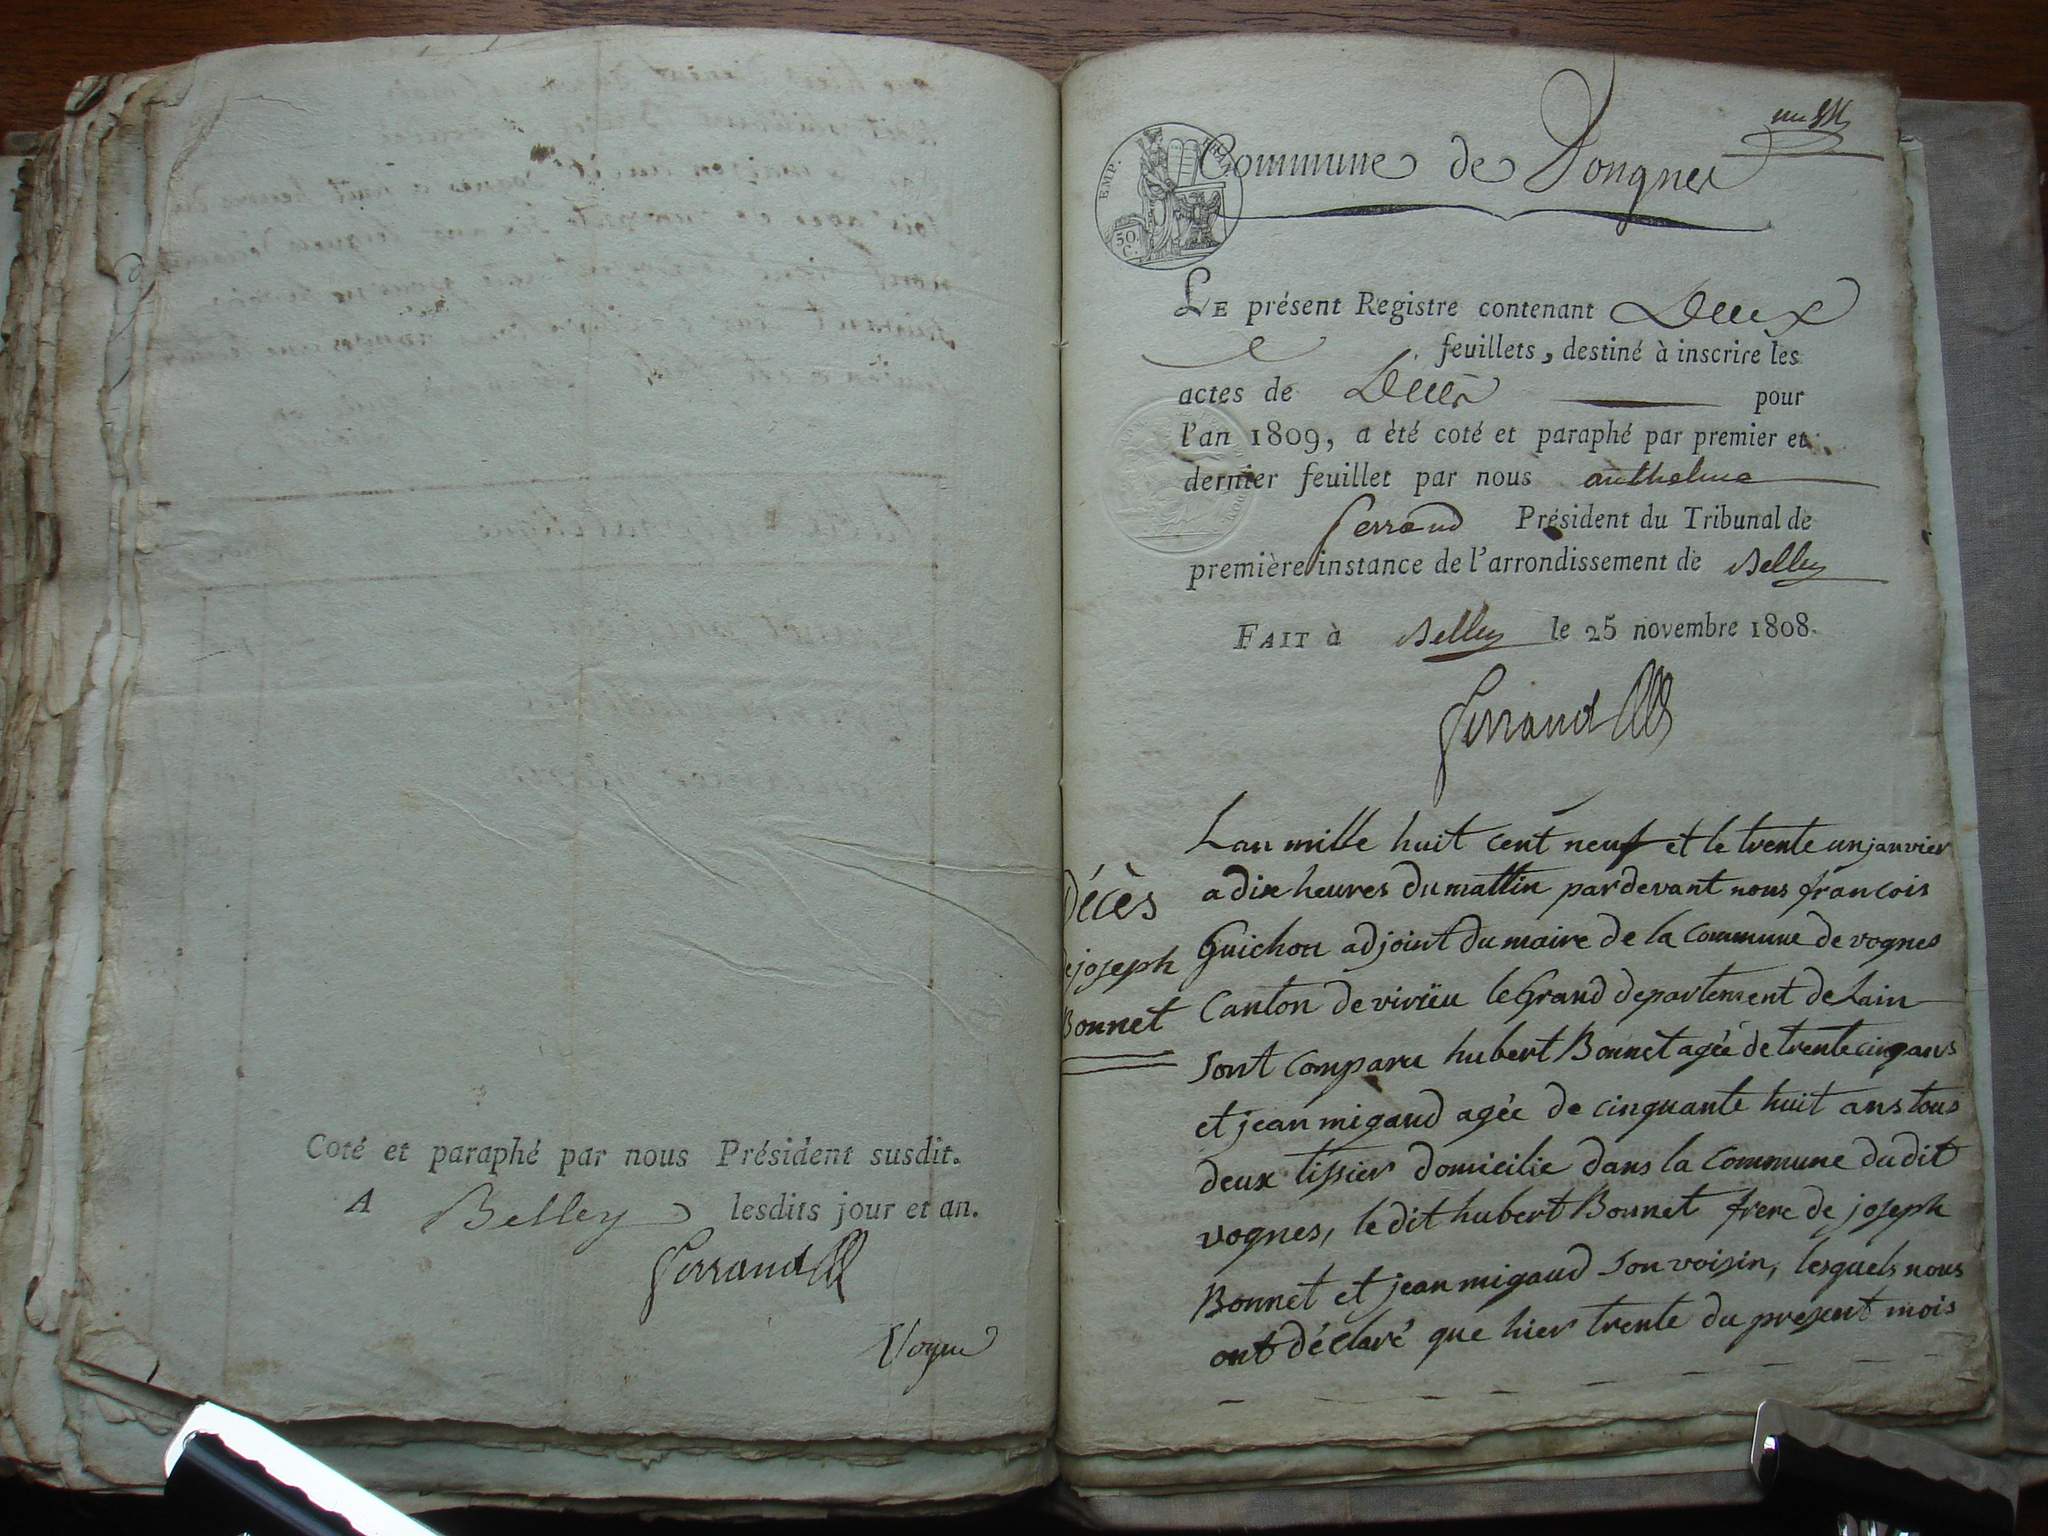 Coté et paraphé par nous Président susdit.
A Belley lesdits jour et an.
Ferrand
EMP. FRAN
50.
C.
Commune de Vongnes
LE présent Registre contenant Deux
feuillets, destiné à inscrire les
actes de Décès pour
l'an 1809, a été coté et paraphé par premier et
dernier feuillet par nous anthelme
ferrand Président du Tribunal de
première instance de l'arrondissement de Belley
FAIT à Belley le 25 novembre 1808.
Ferrand
Décès
de joseph
Bonnet
Lan mille huit cent neuf et le trente un janvier
a dix heures du mattin pardevant nous francois
Guichon adjoint du maire de la commune de vognes
Canton de virïeu le Grand departement de Lain
sont comparu hubert Bonnet agée de trente cinq ans
et jean migaud agée de cinquante huit ans tous
deux tissier domicilie dans la commune dudit
vognes, le dit hubert Bonnet frere de joseph
Bonnet et jean migaud son voisin, lesquels nous
ont déclaré que hier trente du present mois